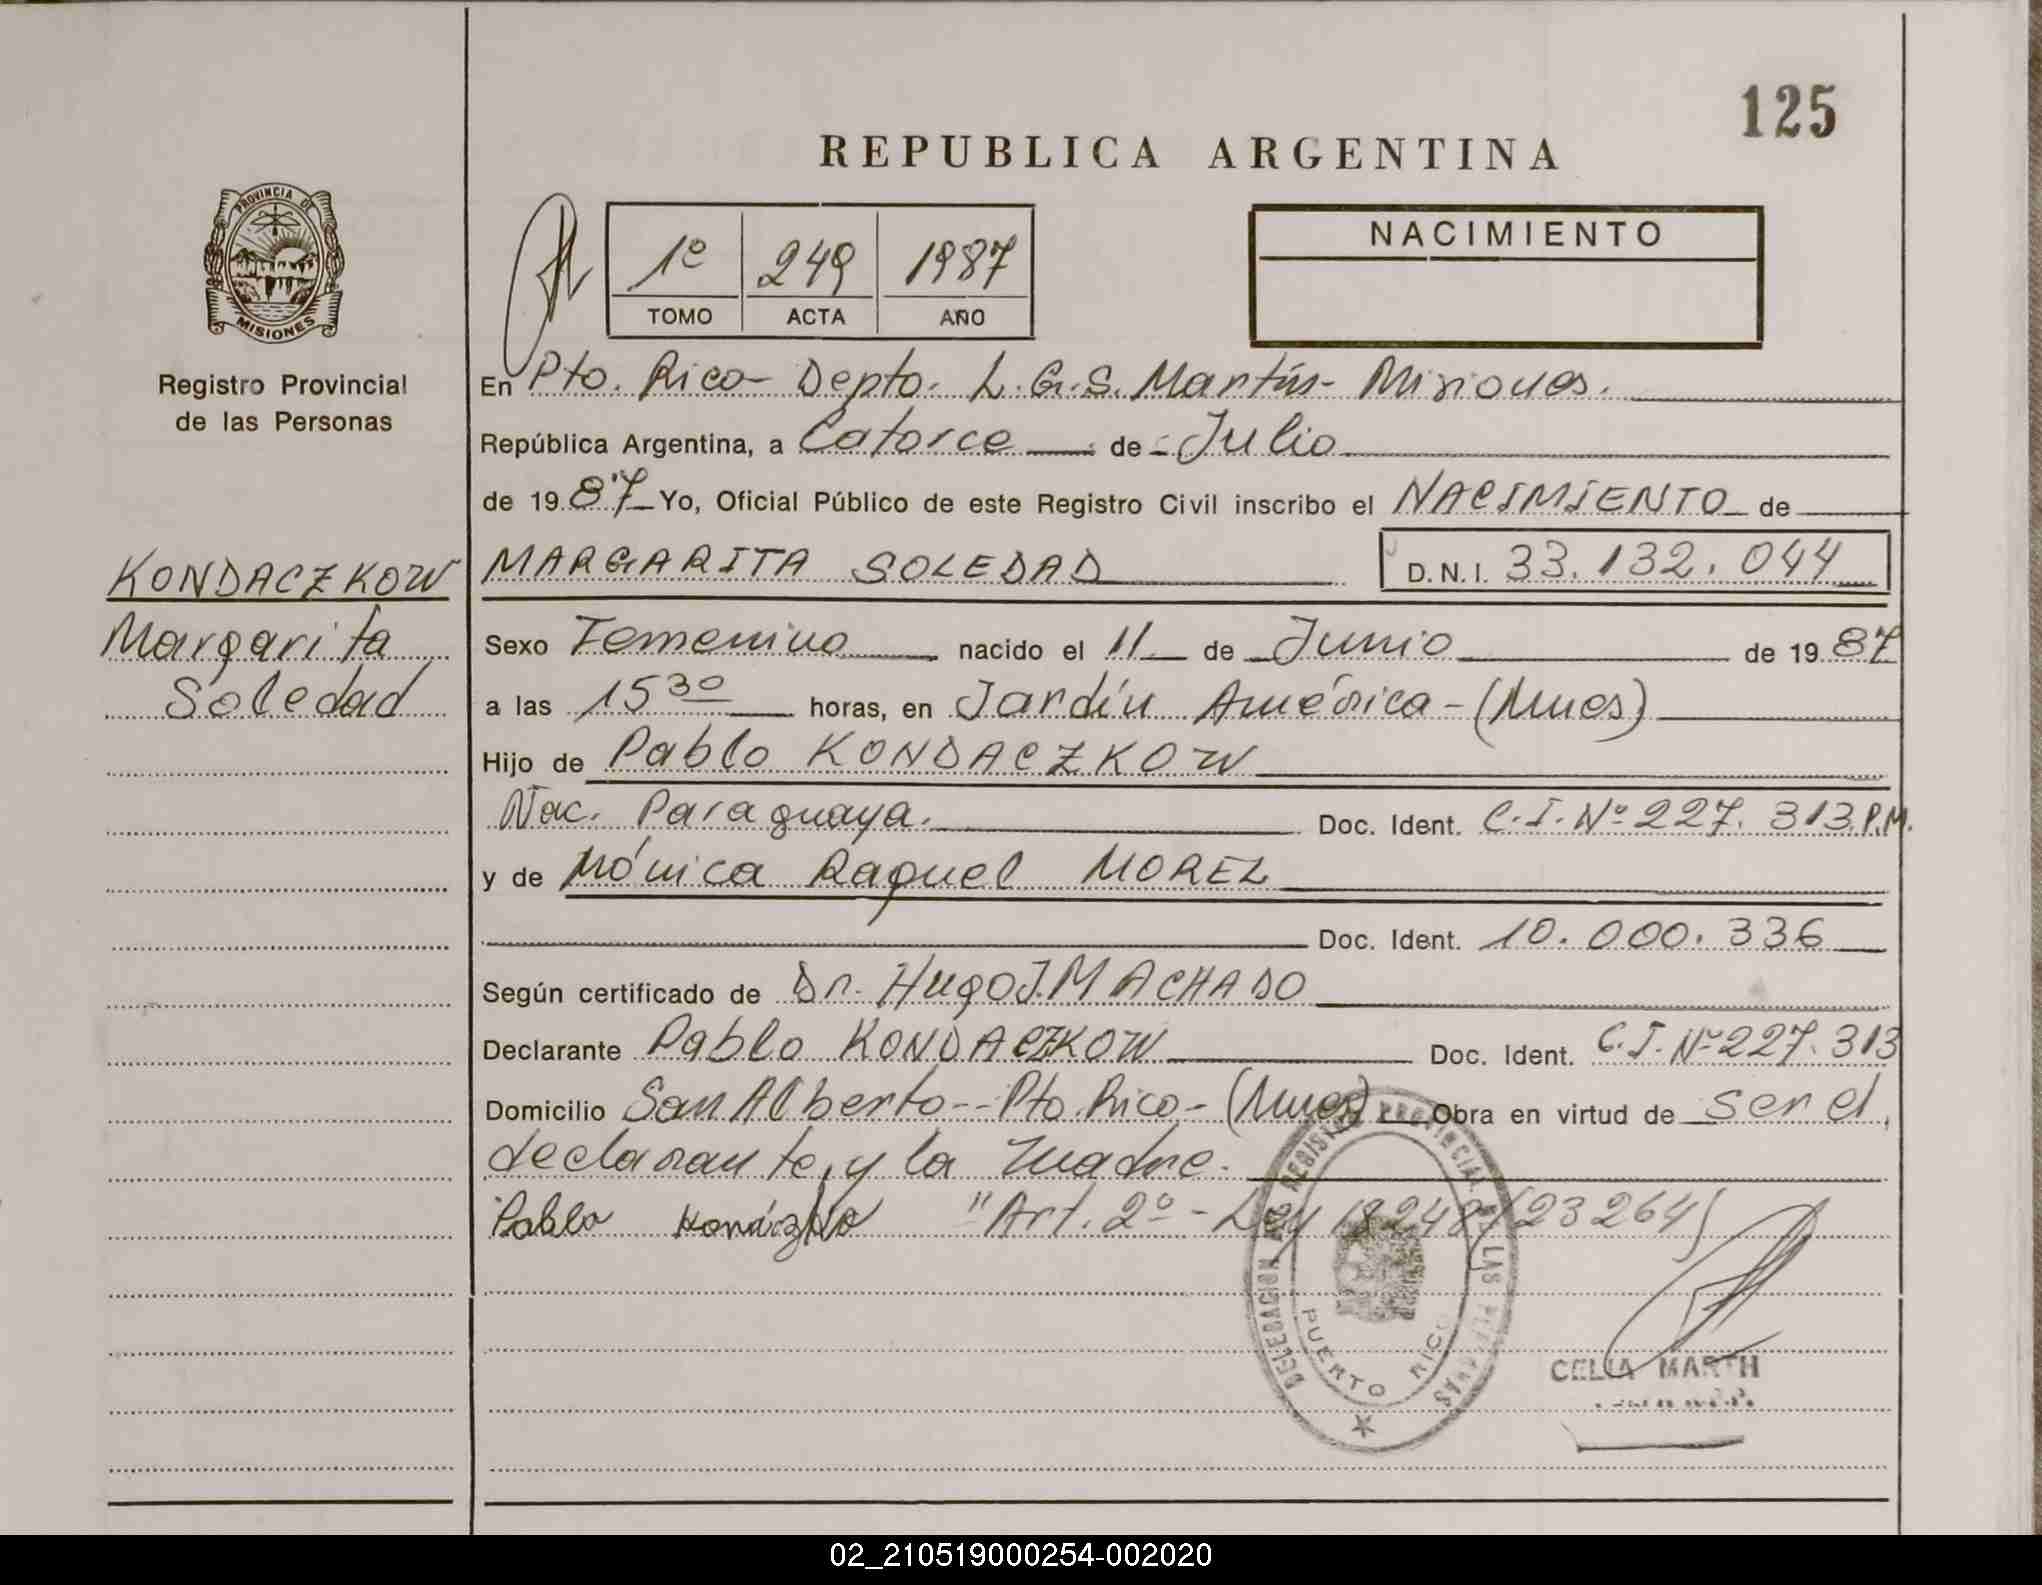 125
REPUBLICA ARGENTINA
PROVINCIA DE
MISIONES
Registro Provincial
de las Personas
1º 249 1987
TOMO ACTA AÑO
NACIMIENTO
En Pto. Rico- Depto. L.G.S. Martín- Misiones.
República Argentina, a Catorce de Julio
de 1987 Yo, Oficial Público de este Registro Civil inscribo el NACIMIENTO de
KONDACZKOW
Margarita
Soledad
MARGARITA SOLEDAD D.N.I. 33.132.044
Sexo Femenino nacido el 11 de Junio de 1987
a las 15 30 horas, en Jardín América-(Mnes)
Hijo de Pablo KONDACZKOW
Nac. Paraguaya. Doc. Ident. C.I. Nº 227.313.P.M.
y de Mónica Raquel MOREL
Doc. Ident. 10.000.336
Según certificado de Dr. Hugo J. MACHADO
Declarante Pablo KONDACZKOW Doc. Ident. C.I. Nº 227.313
Domicilio San Alberto-- Pto. Rico-(Mnes) Obra en virtud de ser el
declarante, y la madre.
Pablo "Art. 2º - Ley 18248/(23264)
DELEGACION DEL REGISTRO PROVINCIAL DE LAS PERSONAS
PUERTO RICO
CELIA MARTH
02_210519000254-002020